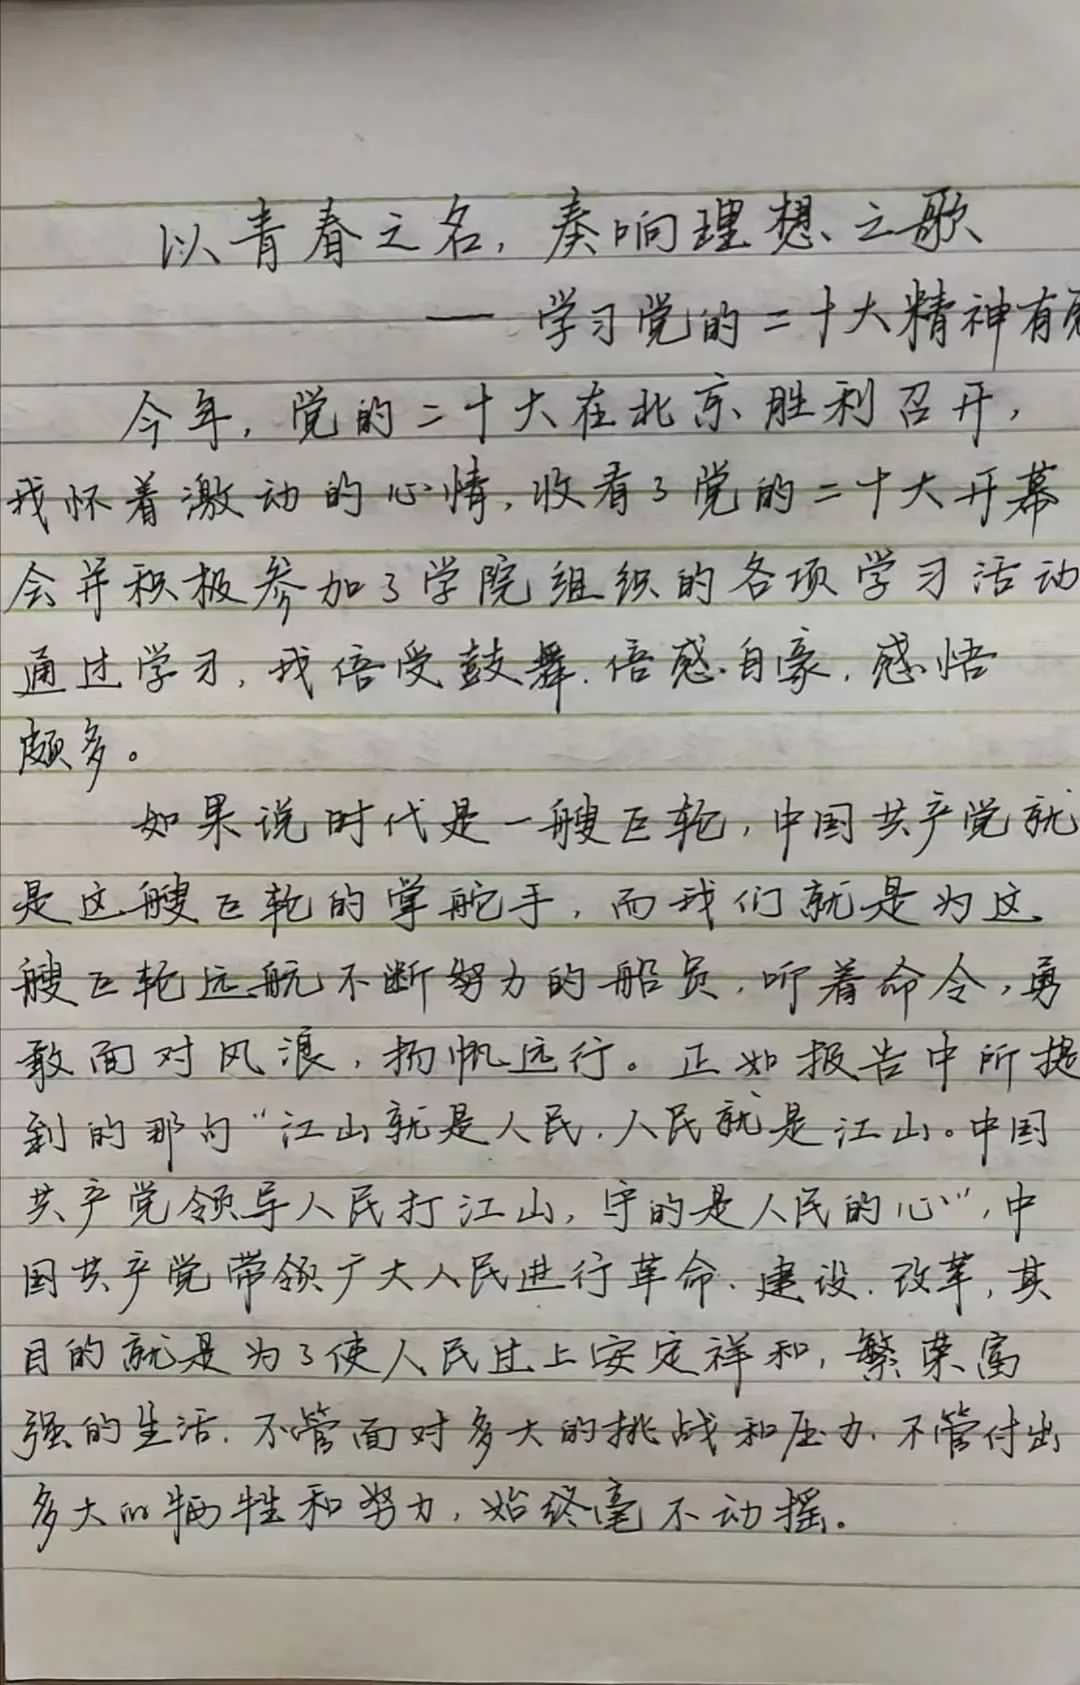 以青春之名,奏响理想之歌
——学习党的二十大精神有感
今年,党的二十大在北京胜利召开,
我怀着激动的心情,收看了党的二十大开幕
会并积极参加了学院组织的各项学习活动
通过学习,我倍受鼓舞、倍感自豪,感悟
颇多。
如果说时代是一艘巨轮,中国共产党就
是这艘巨轮的掌舵手,而我们就是为这
艘巨轮远航不断努力的船员,听着命令,勇
敢面对风浪,扬帆远行。正如报告中所提
到的那句“江山就是人民,人民就是江山。中国
共产党领导人民打江山,守的是人民的心”,中
国共产党带领广大人民进行革命、建设、改革,其
目的就是为了使人民过上安定祥和,繁荣富
强的生活,不管面对多大的挑战和压力,不管付出
多大的牺牲和努力,始终毫不动摇。